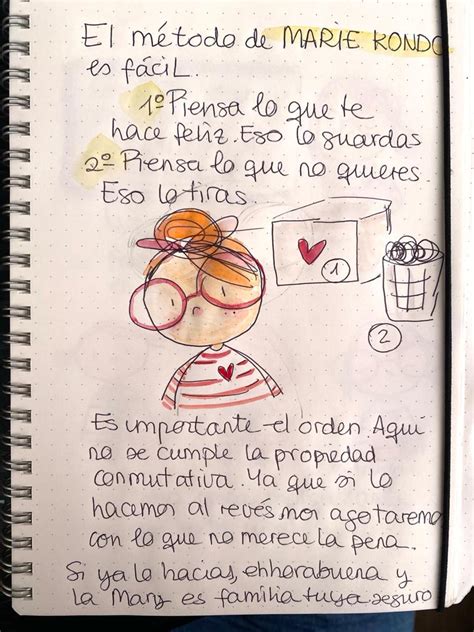 El método de MARIE KONDO
es fácil.
1º Piensa lo que te
hace feliz. Eso lo guardas
2º Piensa lo que no quieres.
Eso lo tiras.
1
2
Es importante el orden. Aquí
no se cumple la propiedad
conmutativa. Ya que si lo
hacemos al revés, nos agotaremo
con lo que no merece la pena.
Si ya lo hacías, ehhorabuena y
la Mary es familia tuya seguro